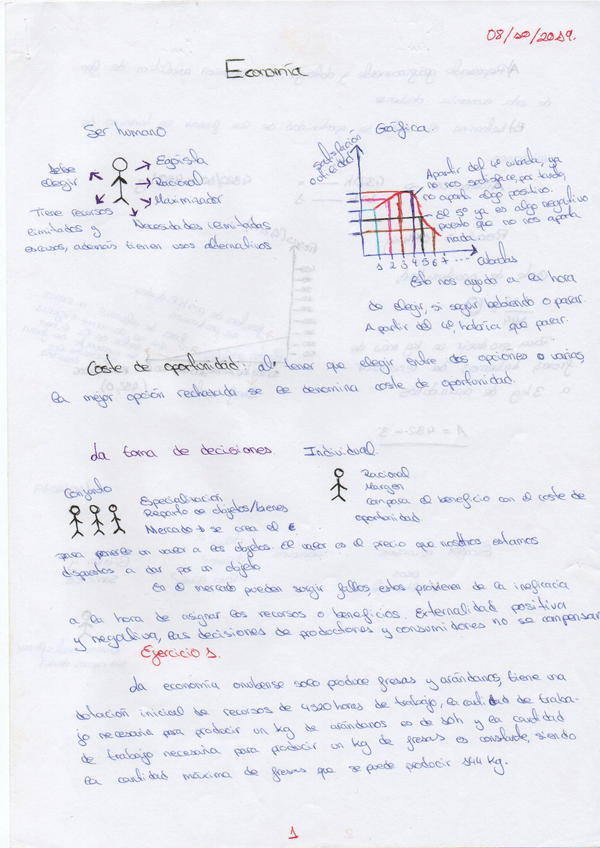 08/10/2019.
Economía
Ser humano
debe
elegir
Egoísta
Racional
Maximizador
Tiene recursos
limitados y
escasos, además tienen usos alternativos
Necesidades ilimitadas
Gráfica
satisfacción
1 2 3 4 5 6 7 ... cubatas
A partir del 4º cubata, ya
no nos satisface, por tanto,
no aporta algo positivo.
el 5º ya es algo negativo
puesto que no nos aporta
nada.
Esto nos ayuda a la hora
de elegir, si seguir bebiendo o parar.
A partir del 4º, habría que parar.
Coste de oportunidad al tener que elegir entre dos opciones o varias,
la mejor opción rechazada se le denomina coste de oportunidad.
La toma de decisiones. Individual.
Conjunto
Especialización
Reparto de objetos/bienes
Mercado → se crea el €
Racional
Margen
compara el beneficio con el coste de
oportunidad.
para ponerle un valor a los objetos. El valor es el precio que nosotros estamos
dispuestos a dar por un objeto
En el mercado pueden surgir fallos, estos provienen de la ineficacia
a la hora de asignar los recursos o beneficios. Externalidad positiva
y negativa, las decisiones de productores y consumidores no se compensan
Ejercicio 1.
La economía onubense solo produce fresas y arándanos, tiene una
dotación inicial de recursos de 4320 horas de trabajo, la cantidad de traba-
jo necesaria para producir un kg de arándanos es de 30h y la cantidad
de trabajo necesaria para producir un kg de fresas es constante, siendo
la cantidad máxima de fresas que se puede producir 144 Kg.
1